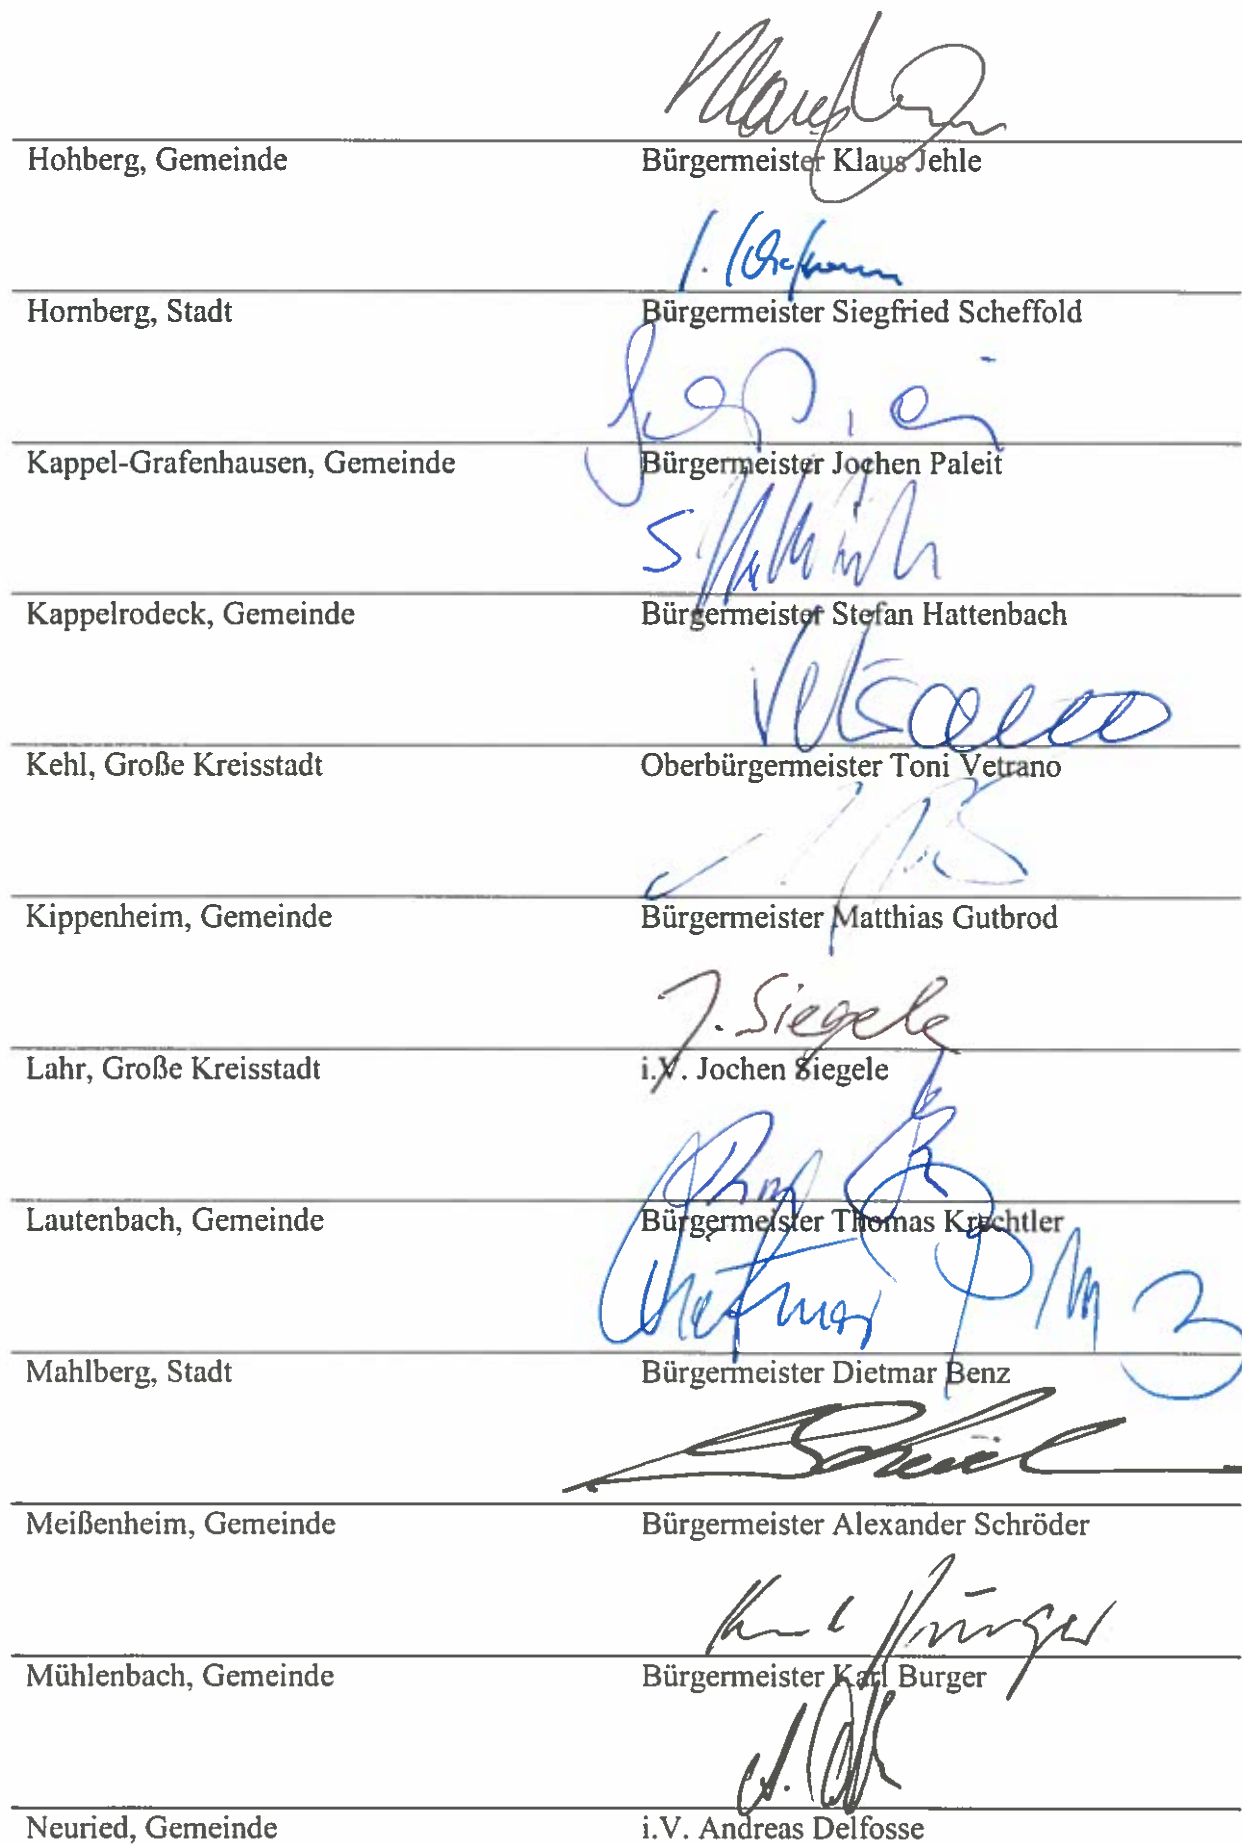 Hohberg, Gemeinde Bürgermeister Klaus Jehle
Hornberg, Stadt Bürgermeister Siegfried Scheffold
Kappel-Grafenhausen, Gemeinde Bürgermeister Jochen Paleit
Kappelrodeck, Gemeinde Bürgermeister Stefan Hattenbach
Vetrano
Kehl, Große Kreisstadt Oberbürgermeister Toni Vetrano
Kippenheim, Gemeinde Bürgermeister Matthias Gutbrod
J. Siegele
Lahr, Große Kreisstadt i.V. Jochen Siegele
Lautenbach, Gemeinde Bürgermeister Thomas Krechtler
Dietmar
Mahlberg, Stadt Bürgermeister Dietmar Benz
Meißenheim, Gemeinde Bürgermeister Alexander Schröder
Karl Burger
Mühlenbach, Gemeinde Bürgermeister Karl Burger
Neuried, Gemeinde i.V. Andreas Delfosse